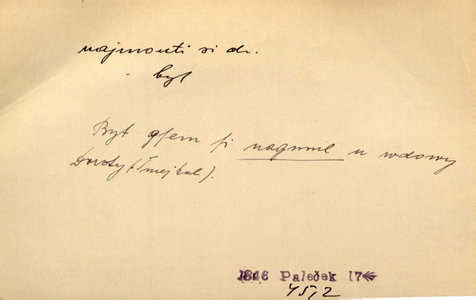 najmouti si dr.
byt
Byt gsem si nagmul u wdowy
Doroty (Smejkal).
1846 Paleček 17
45,2